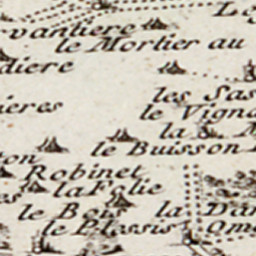 Le
vantiere
le Mortier au
diere
les Sas
ières
le Vigna
la
le Buisson
ton
Robinet
la Folie
es
le Bois la Dar
le Plessis ome